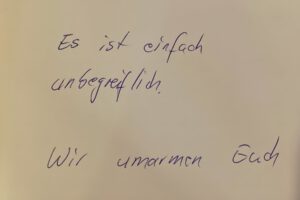 Es ist einfach
unbegreiflich.
Wir umarmen Euch